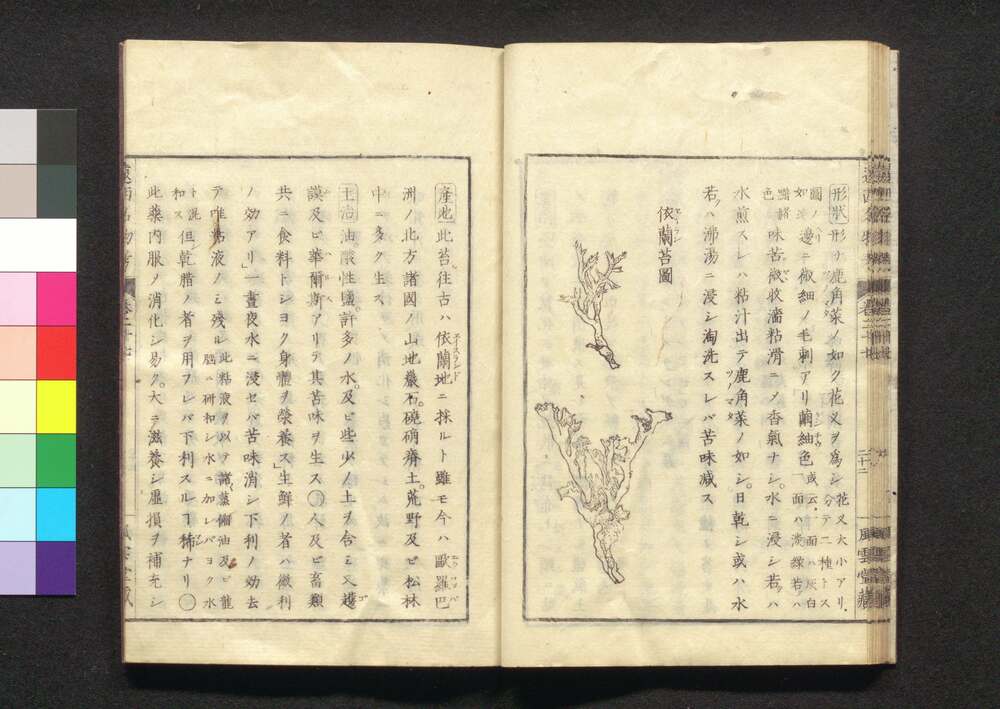 形狀 形チ鹿角菜ノ如ク花叉ヲ爲シ 花叉大小アリ
分テ二種トス
圖ノ
如シ 邊ニ微細ノ毛刺アリ 繭紬色 或云一面ハ灰白
一面ハ淡綠若クハ
色 味苦微收濇粘滑ニメ香氣ナシ水ニ浸シ若クハ
水煎スレハ粘汁出テ鹿角菜ノ如シ日乾シ或ハ水
若クハ沸湯ニ浸シ淘洗スレバ苦味减ス
依蘭苔圖
風雲堂藏
産地 此苔往古ハ依蘭地ニ採ルト雖モ今ハ歐羅巴
洲ノ北方諸國ノ山地巖石磽确瘠土荒野及ビ松林
中ニ多ク生ス
主治 油酸性鹽許多ノ水及ビ些少ノ土ヲ含ミ又護
謨及ビ華爾斯アリテ其苦味ヲ生ス〇人及ビ畜類
共ニ食料トシヨク身體ヲ榮養ス生鮮ノ者ハ微利
ノ効アリ一晝夜水ニ浸セバ苦味消シ下利ノ効去
テ唯粘液ノミ残ル 此粘液ヲ以テ諸蒸餾油及ビ龍
腦ニ研和シ水ニ加レバヨク水
ト混
和ス 但乾腊ノ者ヲ用フレバ下利スルヿ稀ナリ〇
此藥内服ノ消化シ易ク大ニ滋養シ虚損ヲ補充シ